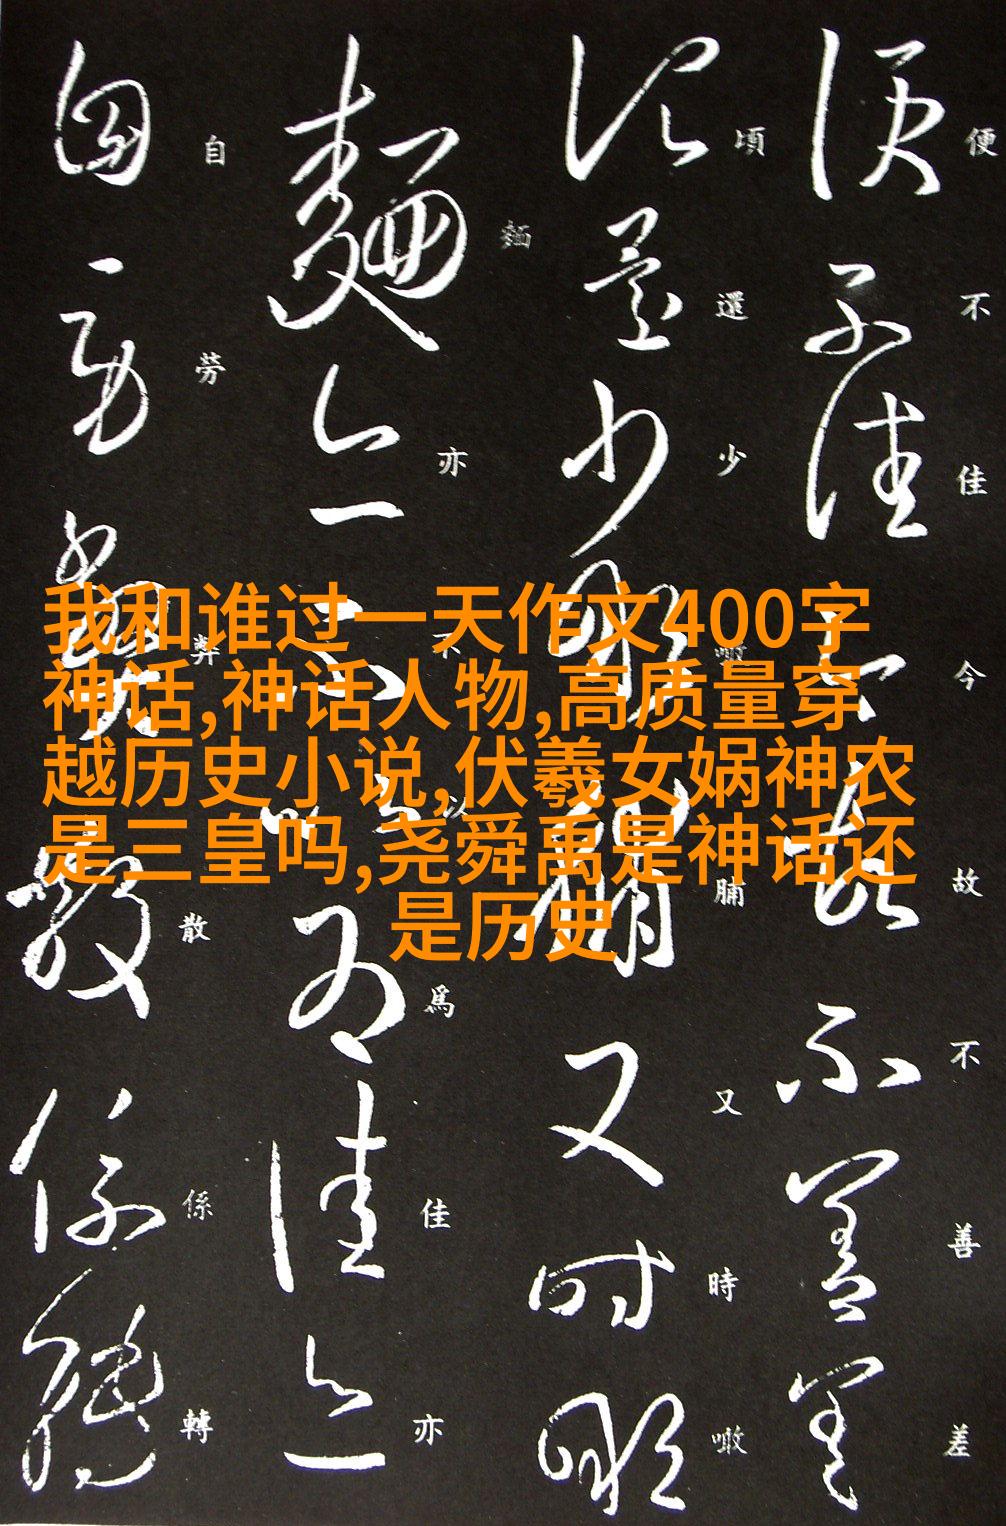 我和谁过一天作文400字
神话,神话人物,高质量穿
越历史小说,伏羲女娲神农
是三皇吗,尧舜禹是神话还
是历史
便不佳今故不善差
頃還少噉脯又時噉
麵亦不以爲佳亦
自勞弊散係轉